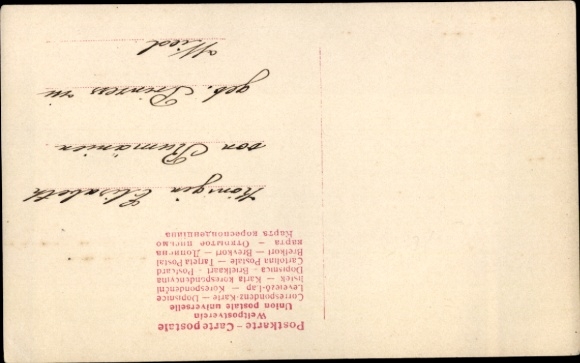 Postkarte – Carte postale
Weltpostverein
Union postale universelle
Correspondenz-Karte – Dopisnice
Levelező-Lap – Korespondenční
lístek – Karta korespondencyjna
Dopisnica – Briefkaart – Postcard
Cartolina Postale – Tarjeta Postal
Brefkort – Brevkort – Дописна
карта – Открытое письмо
Карта кореспонденциина
Königin Elisabeth
von Rumänien
geb. Prinzess zu
Wied